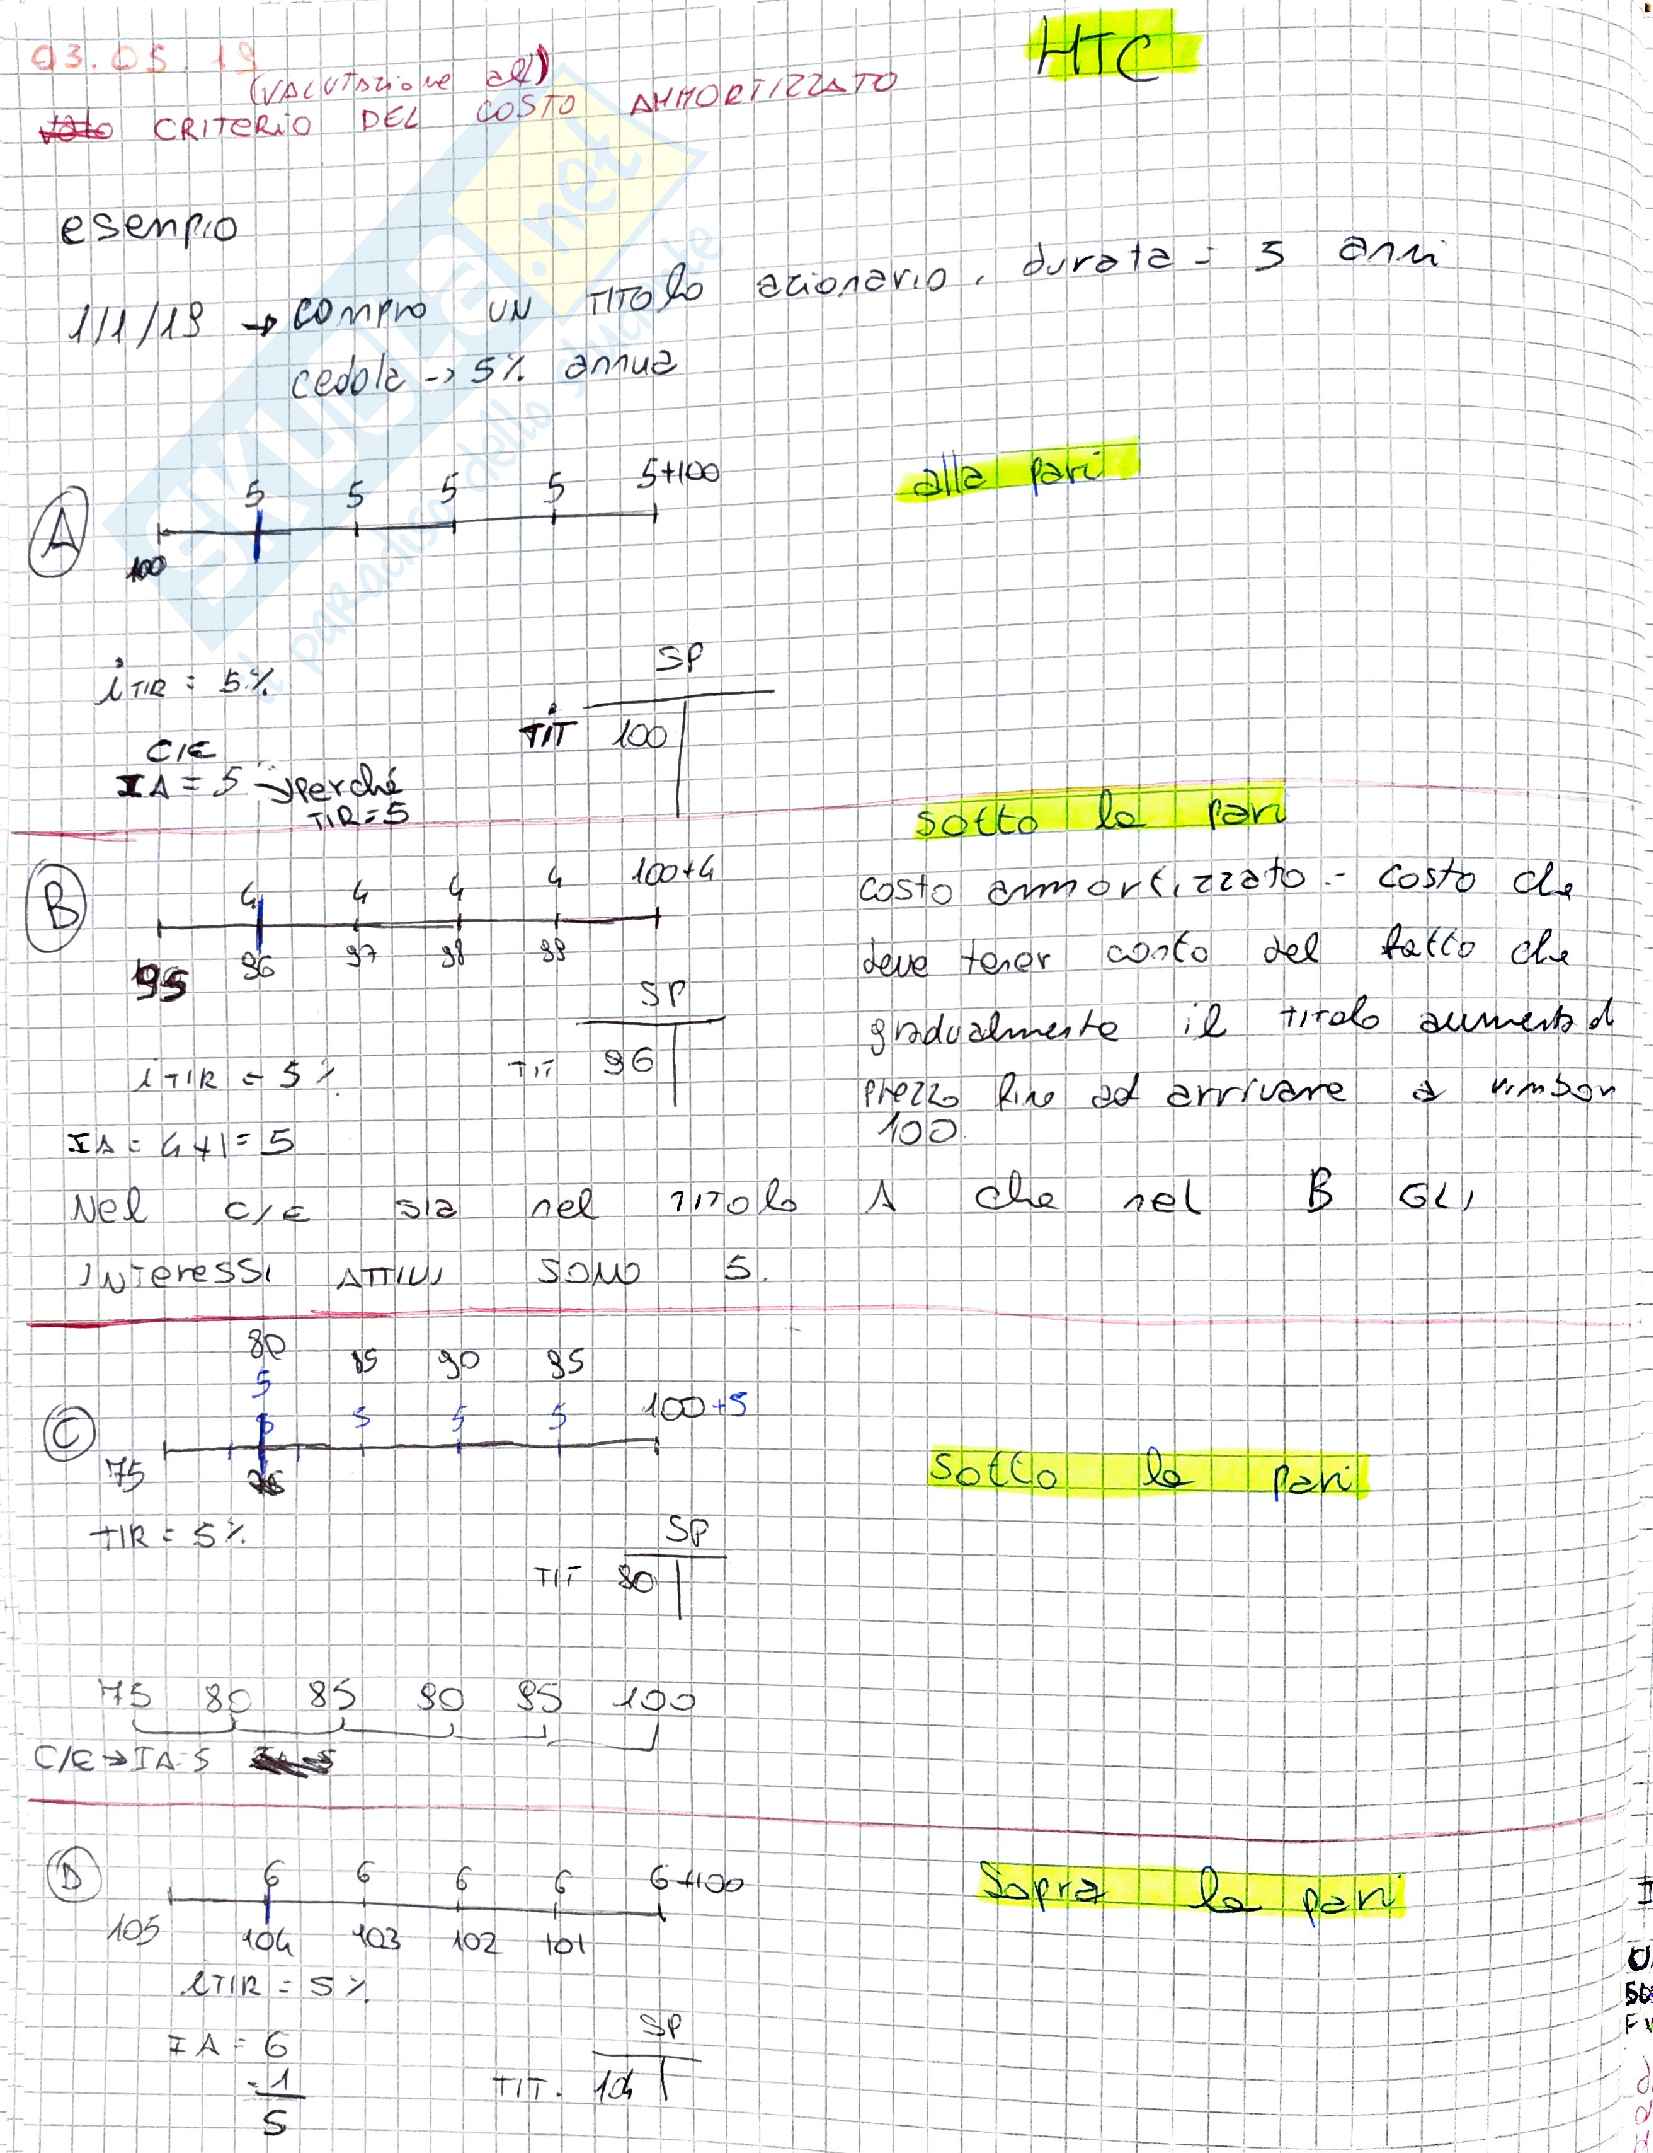 HTC
03.05.19
(VALUTAZIONE al)
CRITERIO DEL COSTO AMMORTIZZATO
esempio
1/1/19 → compro un TITOLO azionario. durata = 5 anni
cedola → 5% annua
alla pari
A
5 5 5 5 5+100
100
SP
iTIR = 5%
TIT 100
C/E
IA = 5 → perché
TIR = 5
sotto la pari
B
4 4 4 4 100+4
95 96 97 98 99
costo ammortizzato - costo che
deve tener conto del fatto che
gradualmente il titolo aumenta d
prezzo fino ad arrivare a rimbor
100.
SP
iTIR = 5%
TIT 96
IA = 4+1 = 5
Nel C/E sia nel TITOLO A che nel B GLI
INTERESSI ATTIVI SONO 5.
80 85 90 95
5
C
5 5 5 5 100+5
75
sotto la pari
TIR = 5%
SP
TIT 80
75 80 85 90 95 100
C/E → IA 5
D
6 6 6 6 6+100
105 104 103 102 101
Sopra la pari
iTIR = 5%
IA = 6
-1
5
SP
TIT. 104
SKUOLA.net
il paradiso dello studente